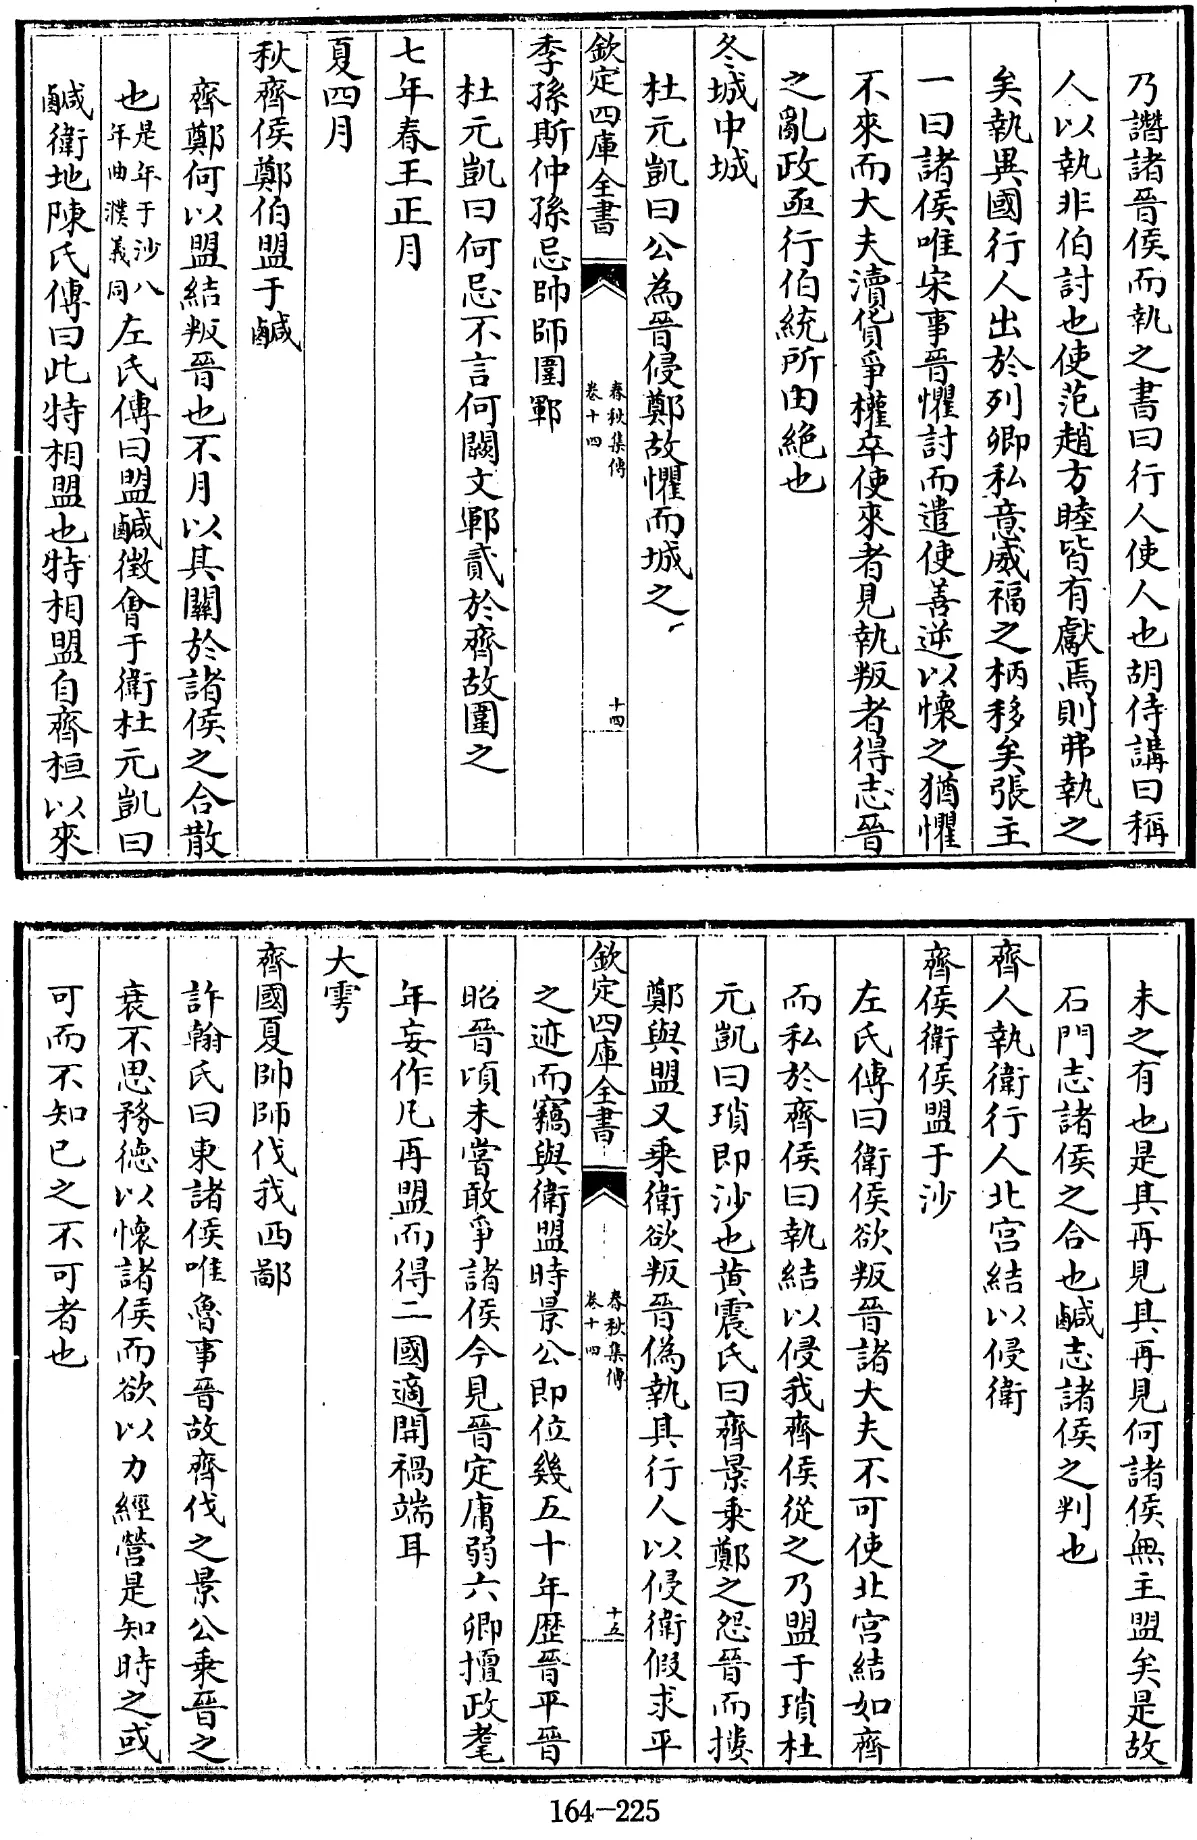 乃譖諸晉侯而執之書曰行人使人也胡侍講曰稱
人以執非伯討也使范趙方睦皆有獻焉則弗執之
矣執異國行人出於列卿私意威福之柄移矣張主
一曰諸侯唯宋事晉懼討而遣使善逆以懷之猶懼
不來而大夫瀆貨爭權卒使來者見執叛者得志晉
之亂政亟行伯統所由絶也
冬城中城
杜元凱曰公為晉侵鄭故懼而城之
欽定四庫全書
春秋集傳
卷十四
十四
季孫斯仲孫忌帥師圍鄆
杜元凱曰何忌不言何闕文鄆貳於齊故圍之
七年春王正月
夏四月
秋齊侯鄭伯盟于鹹
齊鄭何以盟結叛晉也不月以其關於諸侯之合散
也是年于沙八年曲濮義同左氏傳曰盟鹹徵會于衛杜元凱曰
鹹衛地陳氏傳曰此特相盟也特相盟自齊桓以來
未之有也是其再見其再見何諸侯無主盟矣是故
石門志諸侯之合也鹹志諸侯之判也
齊人執衛行人北宮結以侵衛
齊侯衛侯盟于沙
左氏傳曰衛侯欲叛晉諸大夫不可使北宮結如齊
而私於齊侯曰執結以侵我齊侯從之乃盟于瑣杜
元凱曰瑣即沙也黄震氏曰齊景乗鄭之怨晉而摟
鄭與盟又乗衛欲叛晉偽執其行人以侵衛假求平
欽定四庫全書
春秋集傳
卷十四
十五
之迹而竊與衛盟時景公即位幾五十年歴晉平晉
昭晉頃未嘗敢爭諸侯今見晉定庸弱六卿擅政耄
年妄作凡再盟而得二國適開禍端耳
大雩
齊國夏帥師伐我西鄙
許翰氏曰東諸侯唯魯事晉故齊伐之景公乗晉之
衰不思務徳以懷諸侯而欲以力經營是知時之或
可而不知已之不可者也
164-225